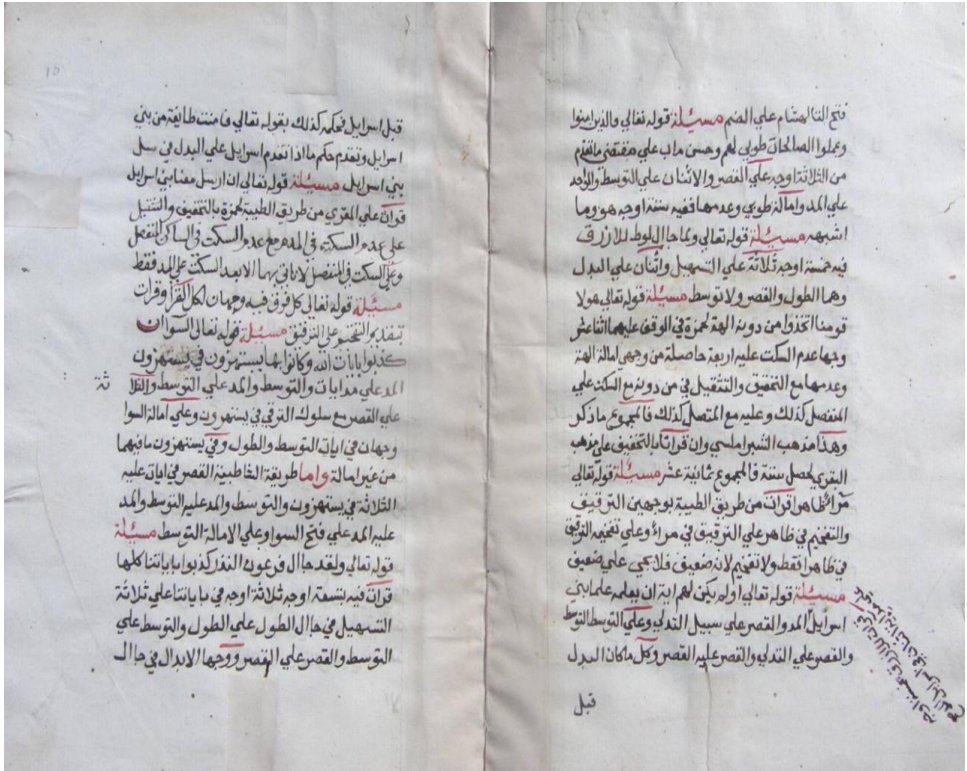 فتح الثا لهشام علي الضم مسيلة قوله تعالي والذين امنوا
وعملوا الصالحات طوبي لهم وحسن ماب علي مقتضي ما تقدم
من الثلاثة اوجه علي القصر والاثنان علي التوسط والاوجه
علي المد وامالة طوبي وعدمها ففيه ستة اوجه هو وما
اشبهه مسيلة قوله تعالي ولما جا ال لوط للازرق
فيه خمسة اوجه ثلاثة علي التسهيل واثنان علي البدل
وهما الطول والقصر ولا توسط مسيلة قوله تعالي هولا
قومنا اتخذوا من دونه الهة لحمزة في الوقف عليهما اثنا عشر
وجها عدم السكت عليه اربعة حاصلة من وجهي امالة الهة
وعدمها مع التحقيق والتثقيل في من دونه مع السكت علي
المنفصل كذلك وعليه مع المتصل كذلك فالمجموع ما ذكر
وهذا مذهب الشبراملسي وان قراتا بالتخفيف علي مذهب
البقري لحصل ستة فالمجموع ثمانية عشر مسيلة قوله تعالي
مرا ظاهرا قرات من طريق الطيبة بوجهين الترقيق
والتفخيم في ظاهر علي الترقيق في مراء وعلي تفخيمه الترقيق
في ظاهرا فقط ولا تفخيم لانه ضعيف فلا يجي علي ضعيف
مسيلة قوله تعالي اوله يكن لهم اية ان يعلمه علما بني
اسرايل المد والقصر علي سبيل التدلي وعلي التوسط التوسط
والقصر علي التدلي والقصر عليه القصر وكل ما كان البدل
قبل
قبل اسرايل فحكمه كذلك بقوله تعالي فامنت طايفة من بني
اسرايل وتقدم حكم ما اذا تقدم اسرايل علي البدل في سل
بني اسرايل مسيلة قوله تعالي ان ارسل معنا بني اسرايل
قرات علي المقري من طريق الطيبة لحمزة بالتحقيق والتثقيل
علي عدم السكت في المد مع عدم السكت في الساكن المنفصل
وعلي السكت في المنفصل لا ياتي بهما الا بعد السكت علي المد فقط
مسيلة قوله تعالي كل فرق فيه وجهان لكل القرا وقرات
بتقديم التفخيم علي الترقيق مسيلة قوله تعالي السواا ان
كذبوا بايات الله وكانوا بها يستهزون في يستهزون
المد علي مد ايات والتوسط والمد علي التوسط والثلا
ثة
علي القصر مع سلوك الترقي في يستهزون وعلي امالة السوا
وجهان في ايات التوسط والطول وفي يستهزون ما فيهما
من غير امالة واما طريقة الشاطبية القصر في ايات عليه
الثلاثة في يستهزون والتوسط والمد عليه التوسط والمد
عليه المد علي فتح السوا وعلي الامالة التوسط مسيلة
قوله تعالي ولقد جا ال فرعون النذر كذبوا باياتنا كلها
قرات فيه بتسعة اوجه ثلاثة اوجه في باياتنا علي ثلاثة
التسهيل في جا ال الطول علي الطول والتوسط علي
التوسط والقصر علي القصر ووجها الابدال في جا ال